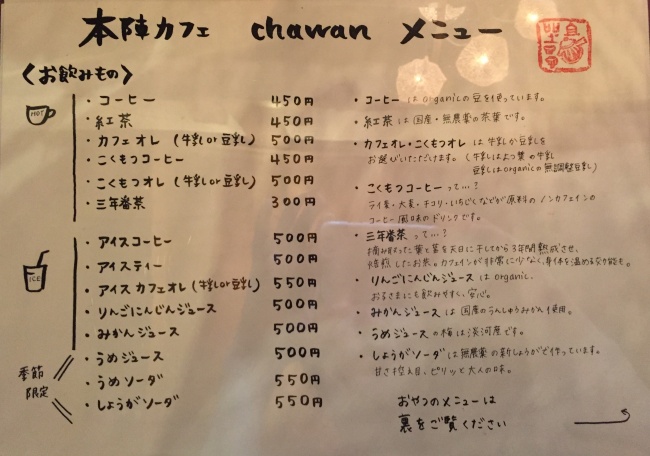 本陣カフェ chawan メニュー
〈お飲みもの〉
HOT
・コーヒー 450円
・紅茶 450円
・カフェオレ (牛乳or豆乳) 500円
・こくもつコーヒー 450円
・こくもつオレ (牛乳or豆乳) 500円
・三年番茶 300円
ICE
・アイスコーヒー 500円
・アイスティー 500円
・アイスカフェオレ (牛乳or豆乳) 550円
・りんごにんじんジュース 500円
・みかんジュース 500円
季節限定
・うめジュース 500円
・うめソーダ 550円
・しょうがソーダ 550円
・コーヒー はorganicの豆を使っています。
・紅茶 は国産・無農薬の茶葉です。
・カフェオレ・こくもつオレ は牛乳か豆乳を
お選びいただけます。(牛乳はよつ葉の牛乳
豆乳はorganicの無調整豆乳)
・こくもつコーヒー って…?
ライ麦・大麦・チコリ・いちじくなどが原料のノンカフェインの
コーヒー風味のドリンクです。
・三年番茶 って…?
摘み取った葉と茎を天日に干してから3年間熟成させ、
焙煎したお茶。カフェインが非常に少なく、身体を温める効能も。
・りんごにんじんジュース はorganic。
お子さまにも飲みやすく、安心。
・みかんジュース は国産のうんしゅうみかん使用。
・うめジュース の梅は淡河産です。
・しょうがソーダ は無農薬の新しょうがで作っています。
甘さ控え目、ピリッと大人の味。
おやつのメニューは
裏をご覧ください